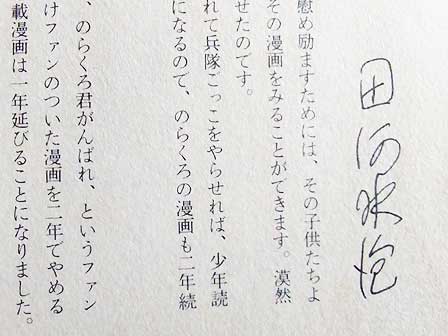 田河水泡
慰め励ますためには、その子供たちよ
その漫画をみることができます。漠然
せたのです。
れて兵隊ごっこをやらせれば、少年読
になるので、のらくろの漫画も二年続
、のらくろ君がんばれ、というファン
けファンのついた漫画を二年でやめる
載漫画は一年延びることになりました。